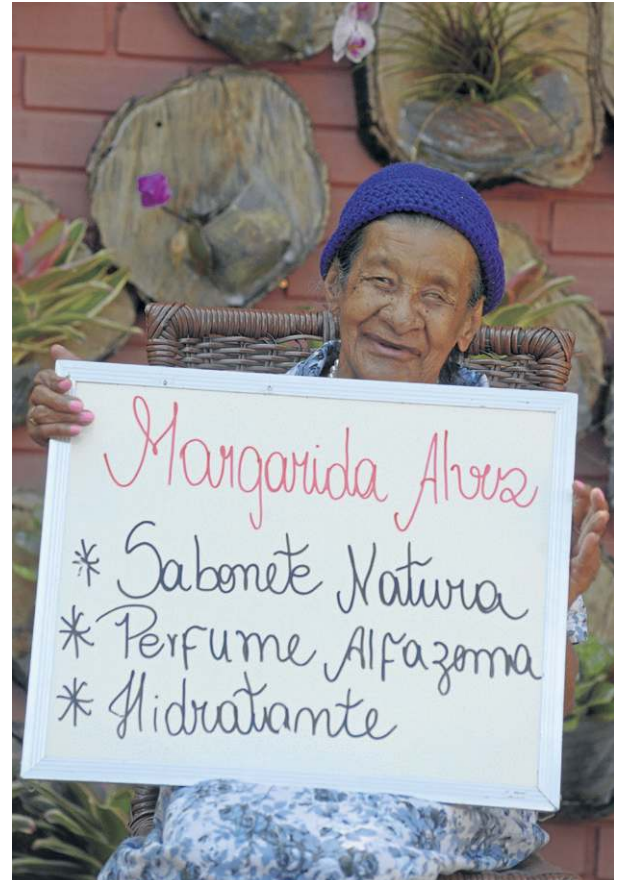 Margarida Alves
* Sabonete Natura
* Perfume Alfazema
* Hidratante